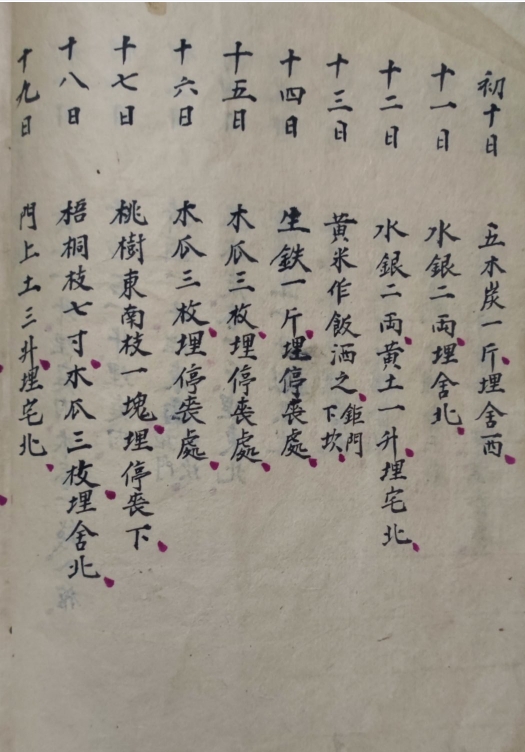 初十日 五木炭一斤埋舍西
十一日 水銀二両埋舍北
十二日 水銀二両黄土一升埋宅北
十三日 黄米作飯洒之鉅門下坎
十四日 生鉄一斤埋停喪處
十五日 木瓜三枚埋停喪處
十六日 木瓜三枚埋停喪處
十七日 桃樹東南枝一塊埋停喪下
十八日 梧桐枝七寸木瓜三枚埋舍北
十九日 門上土三升埋宅北